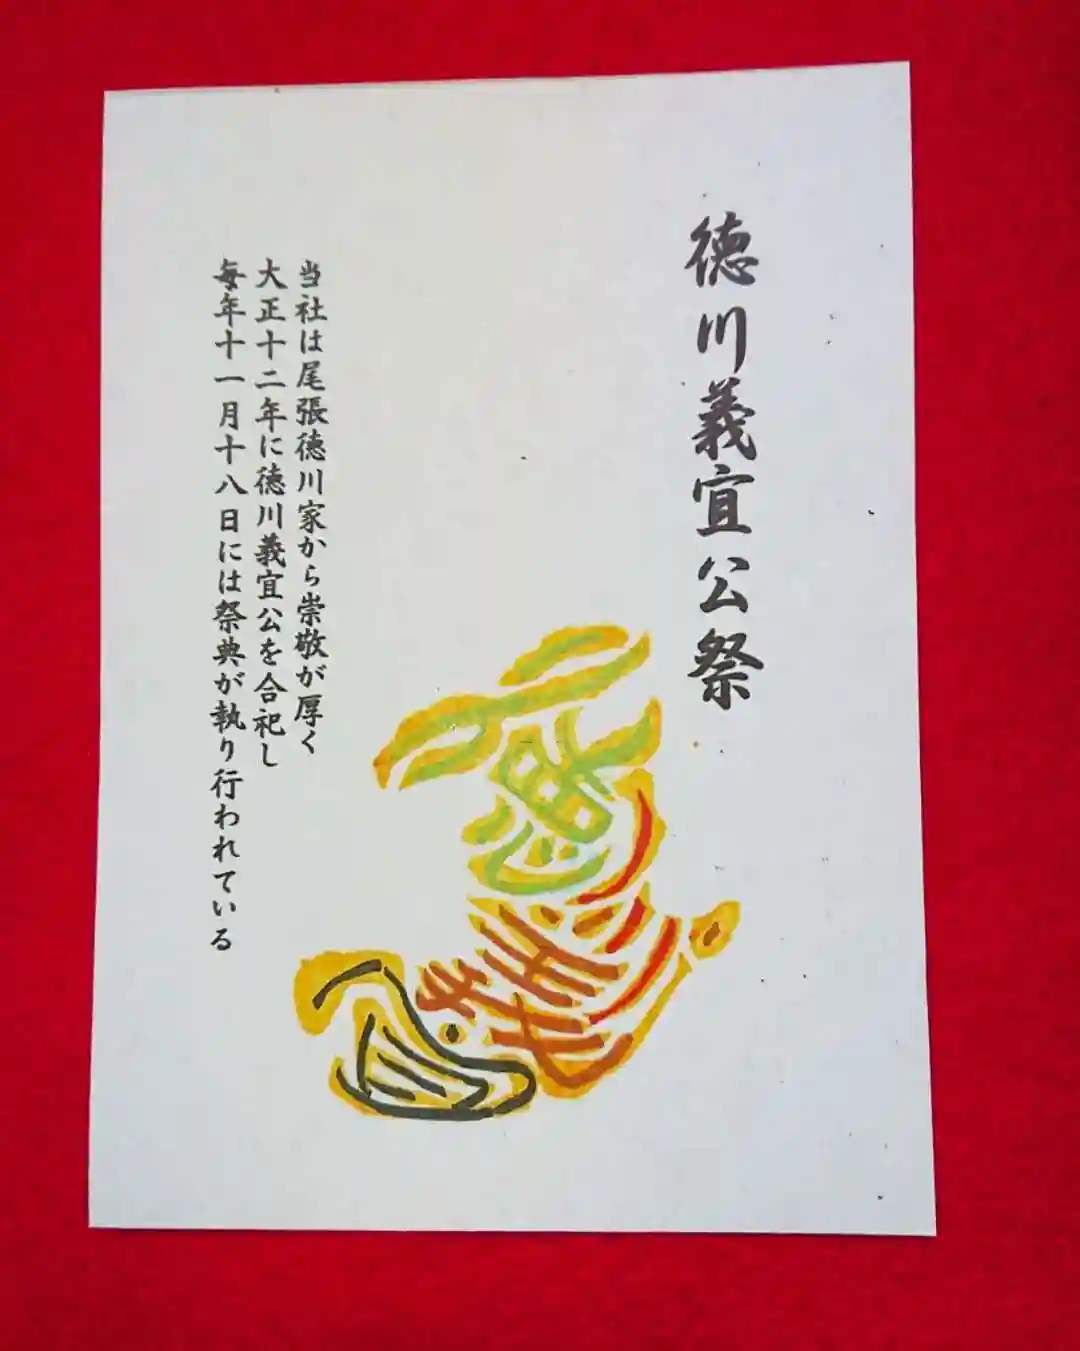 徳川義宜公祭
当社は尾張徳川家から崇敬が厚く
大正十二年に徳川義宜公を合祀し
毎年十一月十八日には祭典が執り行われている